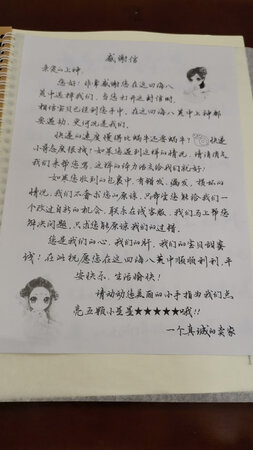 感谢信
亲爱的上神
您好!非常感谢您在这四海八
荒中选择我们,当您打开这封信时,
相信宝贝已经到您手中,在四海八荒中上神都
要邂逅,更何况是我们。
快递的速度慢得比蜗牛还要蜗牛!快递
小哥态度很拽!如果您遇到这样的情况,请消消气
我们来帮您骂,这样的体力活交给我们就好!
如果您收到的包裹中,有错发,漏发,损坏的
情况,我们不奢求您心原谅,只希望您能给我们一
个改过自新的机会,联系在线客服,我们马上帮您
解决问题,只求您能原谅我们的过错。
您是我们的心,我们的肝,我们的宝贝甜蜜
饯!在此祝愿您在这四海八荒中顺顺利利,平
安快乐,生活愉快!
请动动您美丽的小手指为我们点
亮五颗小星星★★★★★哦!!
一个真诚的卖家